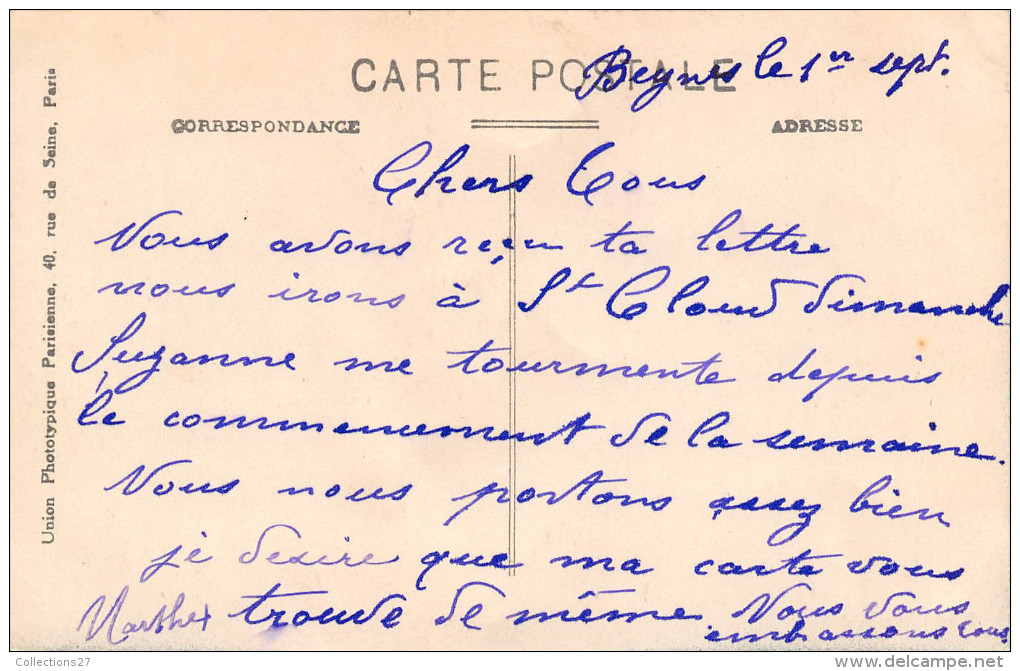 CARTE POSTALE
Beynes le 1er sept.
CORRESPONDANCE
ADRESSE
Union Phototypique Parisienne, 40, rue de Seine, Paris
Chers Tous
Nous avons reçu ta lettre
nous irons à St Cloud dimanche
Suzanne me tourmente depuis
le commencement de la semaine.
Nous nous portons assez bien
je desire que ma carte vous
trouve de même. Nous vous
embrassons tous.
Marthe
Collections27
delcampe.net